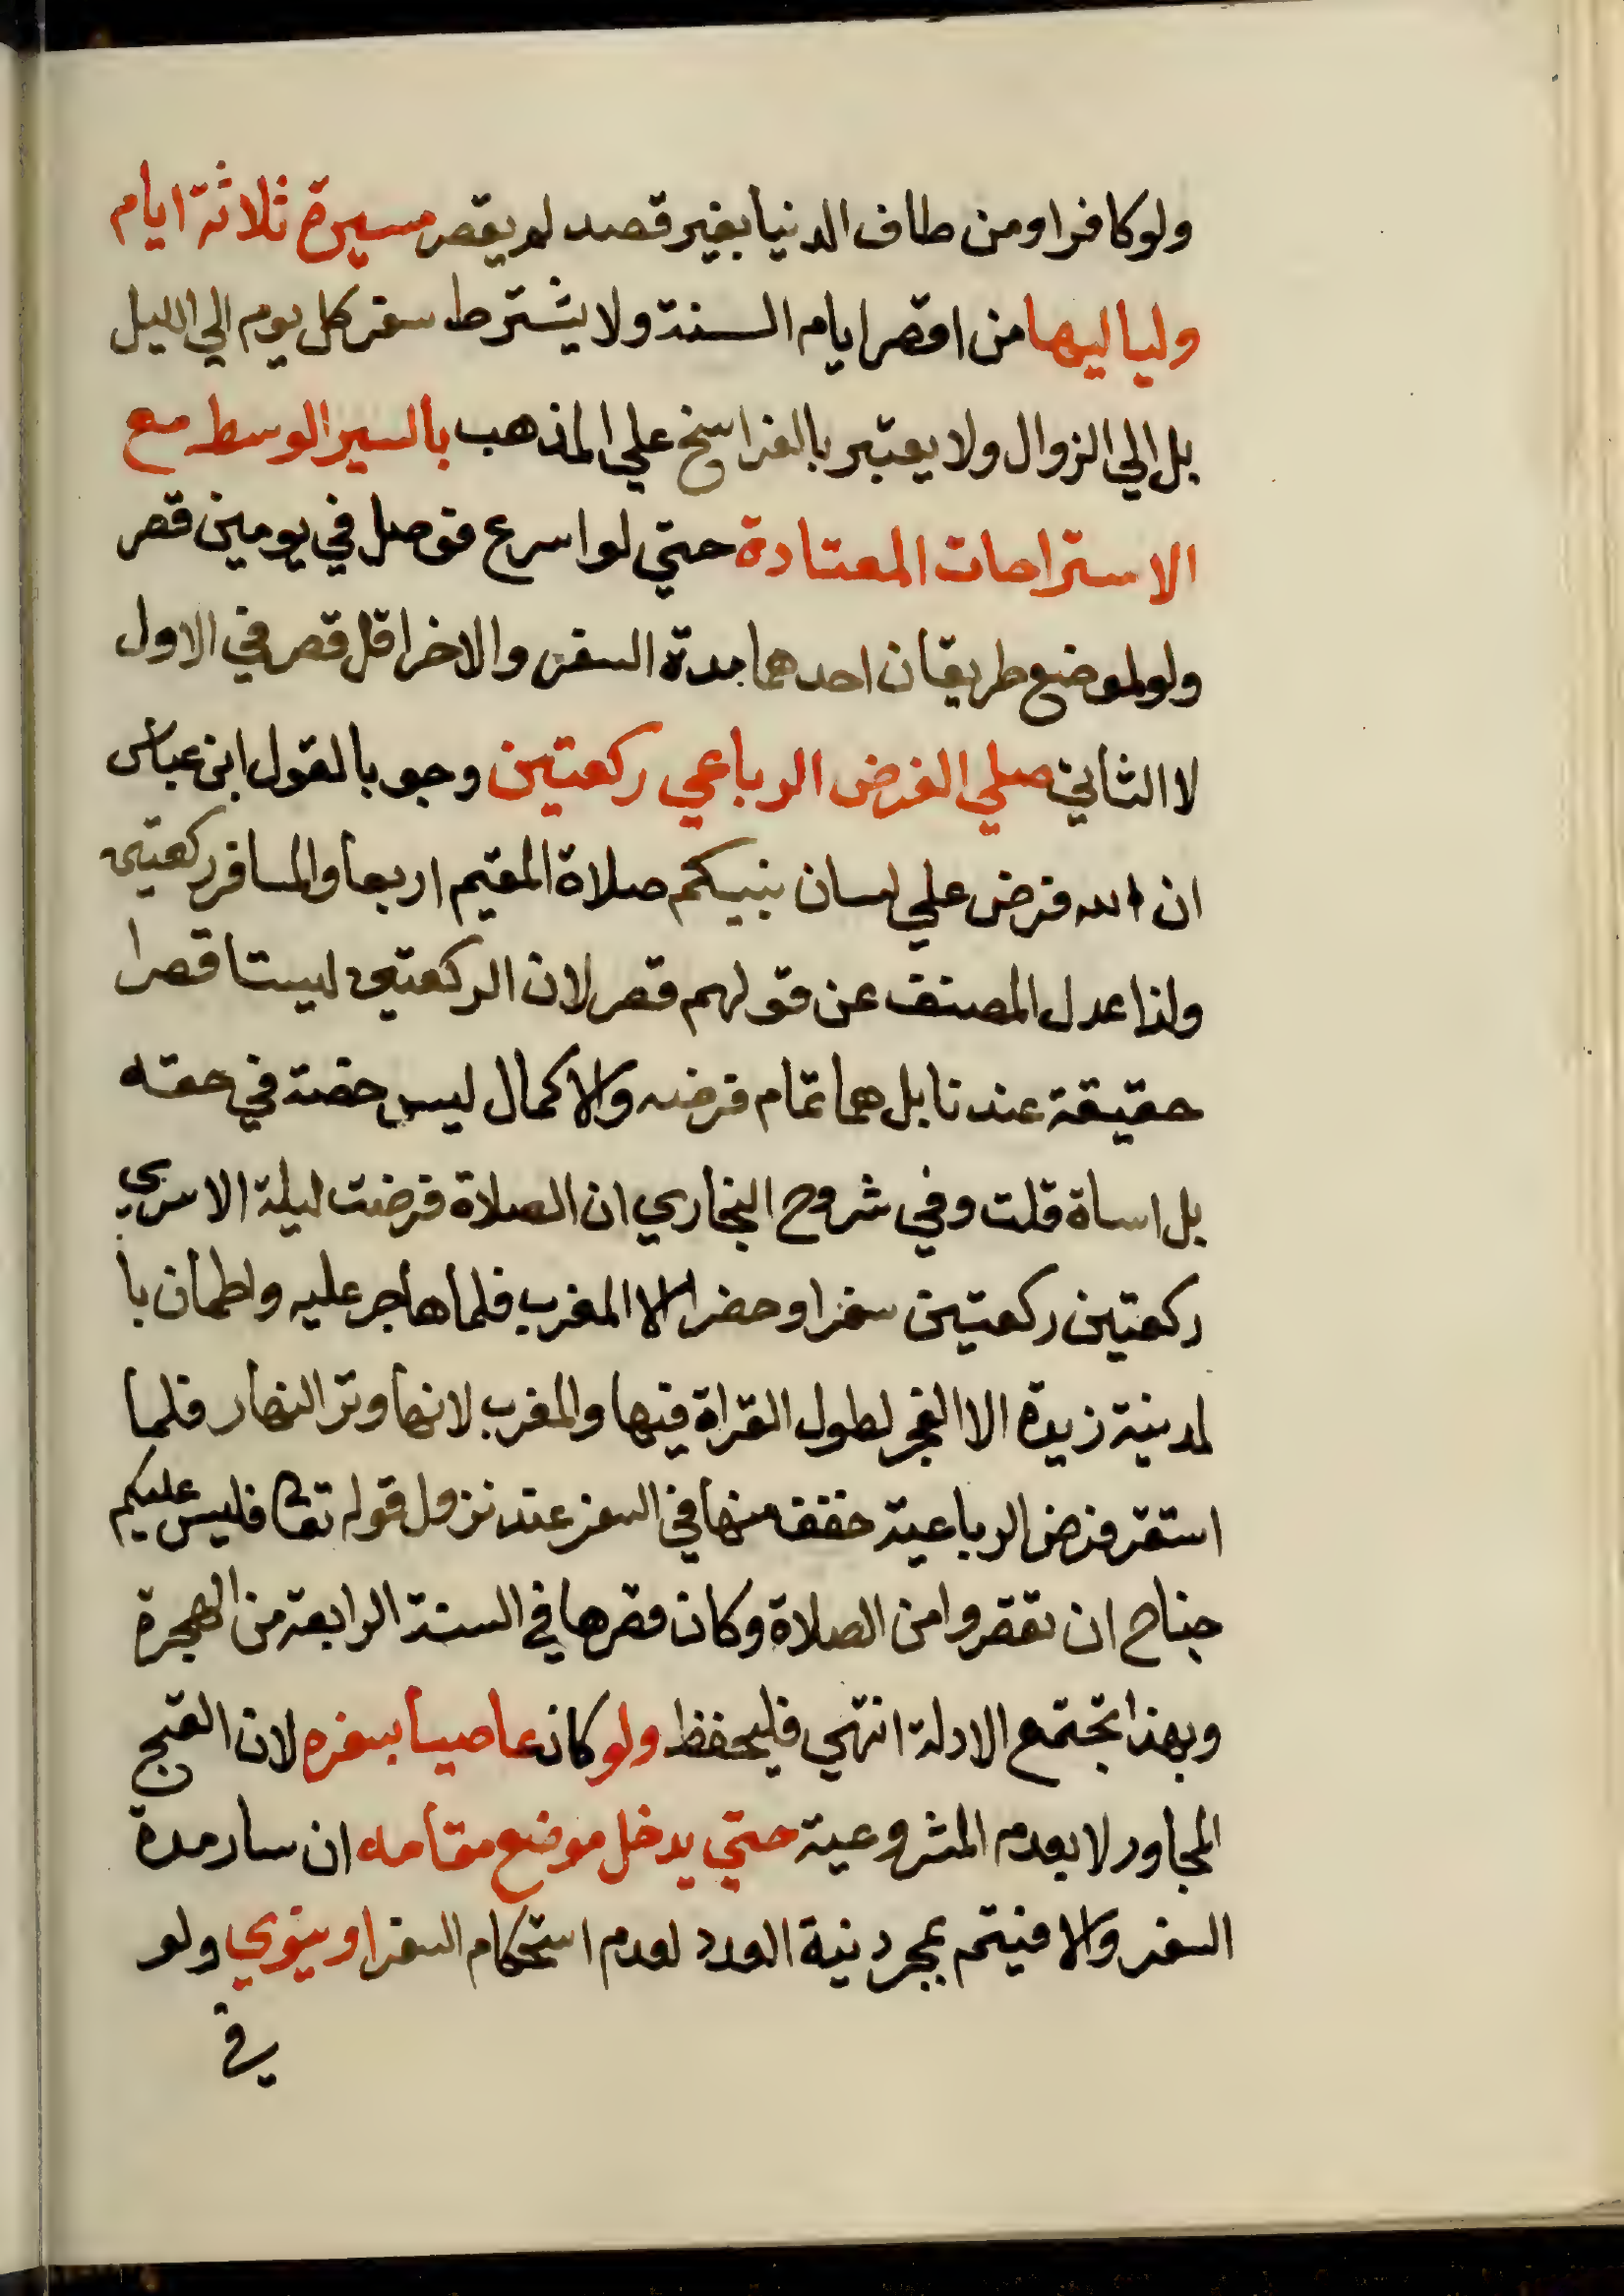 ولو كافرا ومن طاف الدنيا بغير قصد لم يقصر مسيرة ثلاثة ايام
ولياليها من اقصر ايام السنة ولا يشترط سفر كل يوم الي الليل
بل الي الزوال ولا يعتبر بالفراسخ علي المذهب بالسير الوسط مع
الاستراحات المعتادة حتي لو اسرع فوصل في يومين قصر
ولو لموضع طريقان احدهما مدة السفر والاخر اقل قصر في الاول
لا الثاني صلي الفرض الرباعي ركعتين وجوبا لقول ابن عباس
ان الله فرض علي لسان نبيكم صلاة المقيم اربعا والمسافر ركعتين
ولذا عدل المصنف عن قولهم قصر لان الركعتين ليستا قصرا
حقيقة عندنا بل هما تمام فرضه والاكمال ليس رخصة في حقه
بل اساة قلت وفي شروح البخاري ان الصلاة فرضت ليلة الاسري
ركعتين ركعتين سفرا وحضرا الا المغرب فلما هاجر عليه واطمان با
لمدينة زيدة الا الفجر لطول القراة فيها والمغرب لانها وتر النهار فلما
استقر فرض الرباعية خفف منها في السفر عند نزول قوله تعا فليس عليكم
جناح ان تقصروا من الصلاة وكان قصرها في السنة الرابعة من الهجرة
وبهذا تجتمع الادلة انتهي فليحفظ ولو كان عاصيا بسفره لان القبح
المجاور لا يعدم المشروعية حتي يدخل موضع مقامه ان سار مدة
السفر والا فيتم بمجرد نية العود لعدم استحكام السفر او ينوي ولو
في